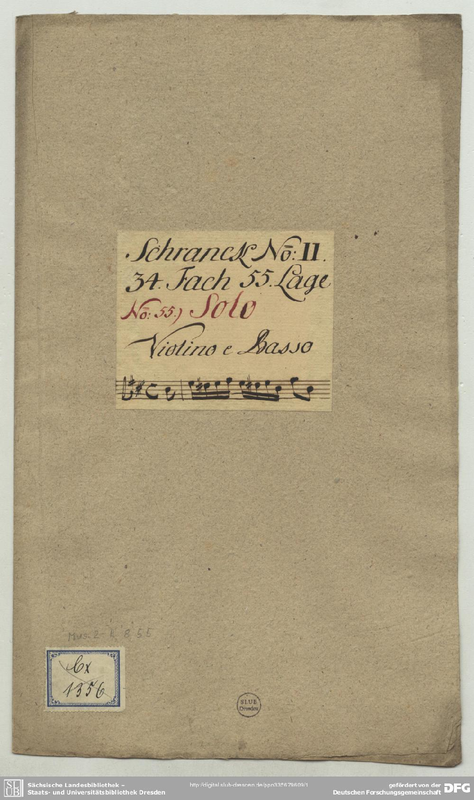 Schranck No: II.
34. Fach 55. Lage
No: 55.) Solo
Violino e Basso
Mus. 2-R-8,55
Cx
1356
SLUB
Dresden
SLUB
Sächsische Landesbibliothek –
Staats- und Universitätsbibliothek Dresden
gefördert von der
Deutschen Forschungsgemeinschaft
DFG